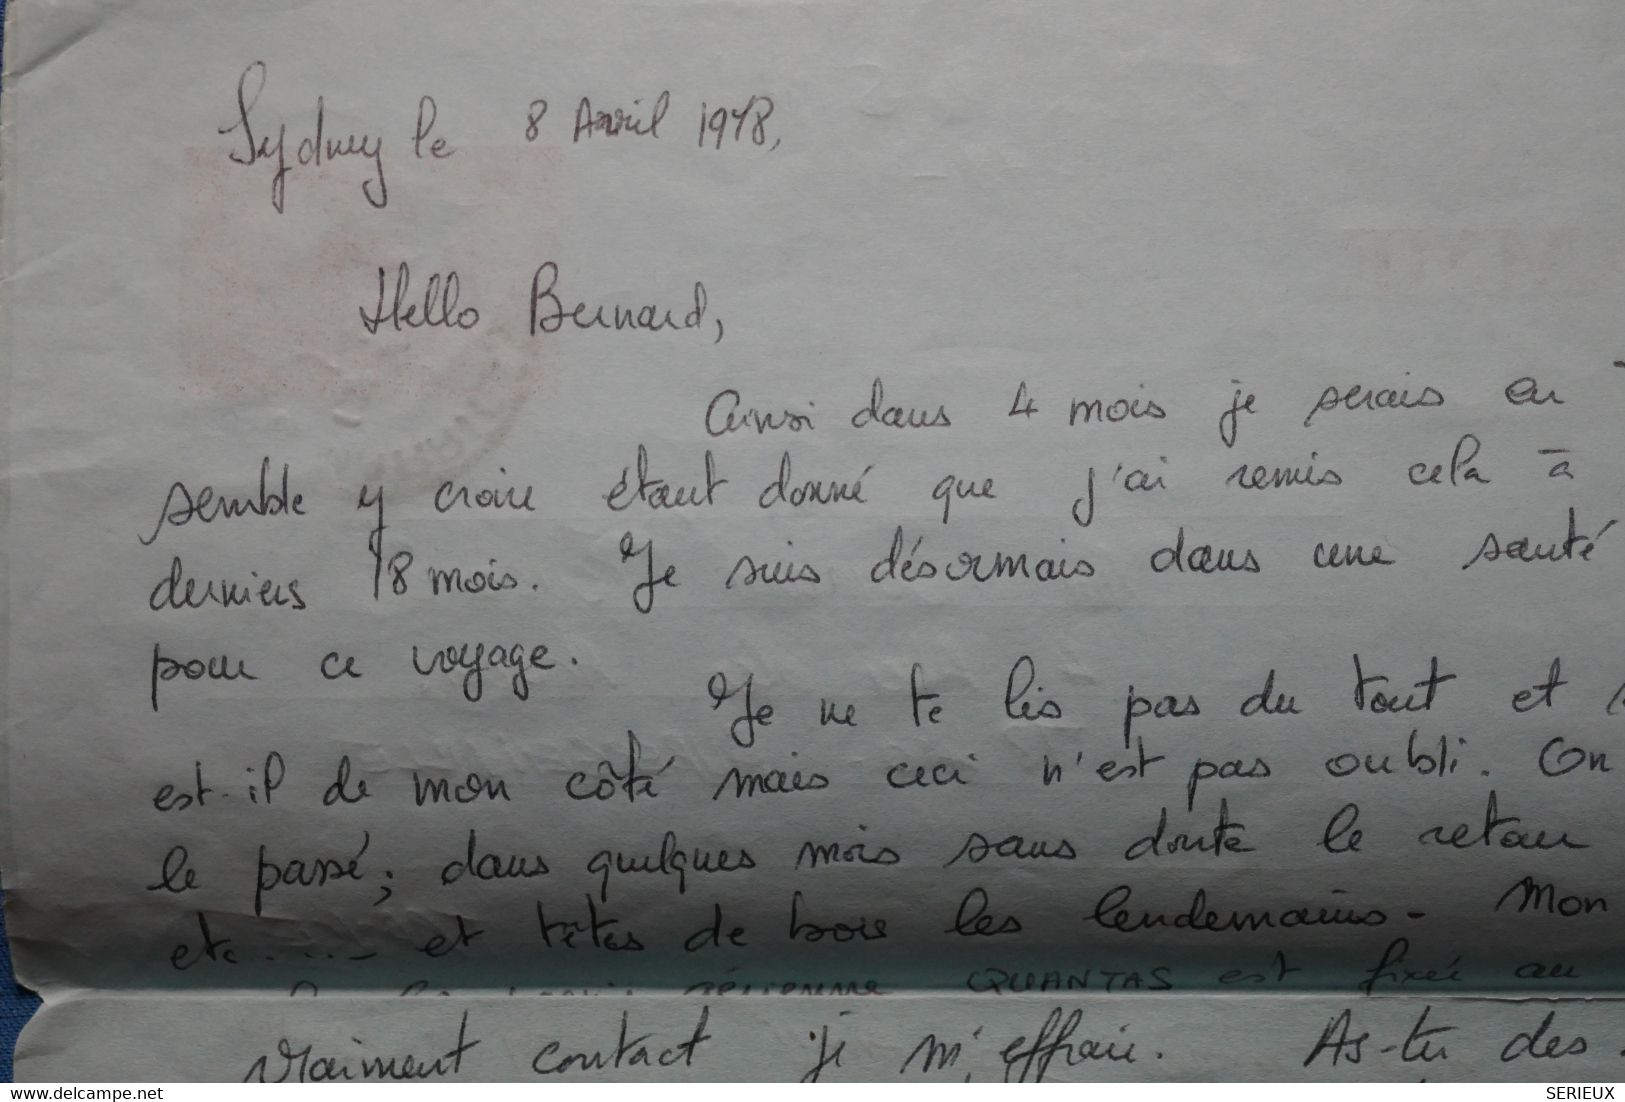 Sydney le 8 Avril 1978,
Hello Bernard,
Ainsi dans 4 mois je serais en
semble y croire étant donné que j'ai remis cela à
derniers 18 mois. Je suis désormais dans une santé
pour ce voyage.
Je ne te lis pas du tout et
est-il de mon côté mais ceci n'est pas oubli. On
le passé; dans quelques mois sans doute le retour
etc..... et têtes de bois les lendemains - Mon
QUANTAS est fixée au
vraiment contact je m'effraie. As-tu des
delcampe.net
SERIEUX